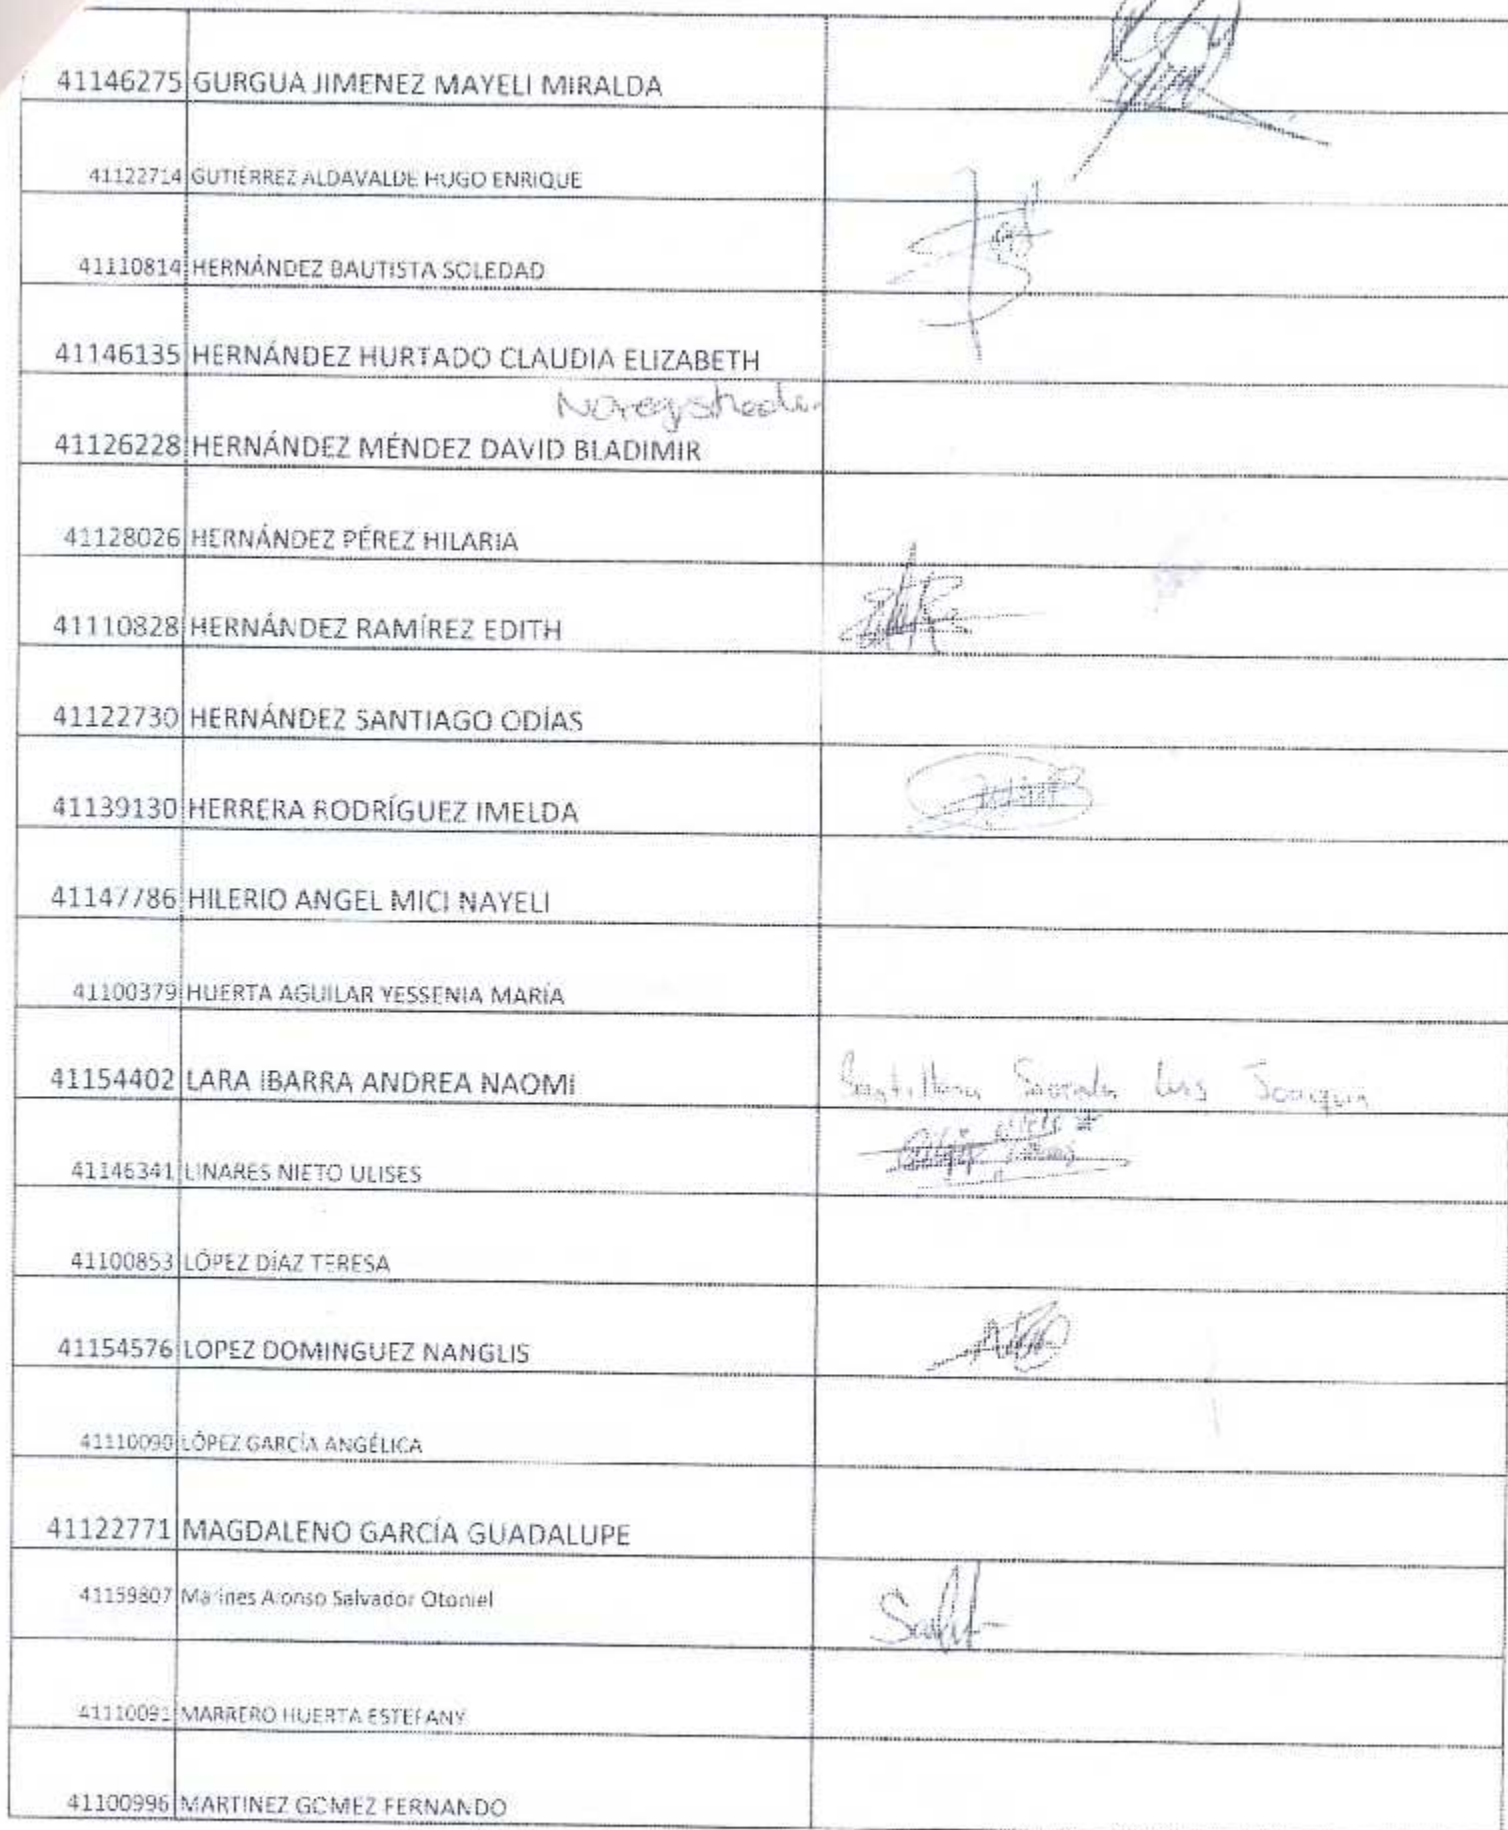 41146275 GURGUA JIMENEZ MAYELI MIRALDA
41122714 GUTIÉRREZ ALDAVALDE HUGO ENRIQUE
41110814 HERNÁNDEZ BAUTISTA SOLEDAD
41146135 HERNÁNDEZ HURTADO CLAUDIA ELIZABETH
41126228 HERNÁNDEZ MÉNDEZ DAVID BLADIMIR
41128026 HERNÁNDEZ PÉREZ HILARIA
41110828 HERNÁNDEZ RAMÍREZ EDITH
41122730 HERNÁNDEZ SANTIAGO ODÍAS
41139130 HERRERA RODRÍGUEZ IMELDA
41147786 HILERIO ANGEL MICI NAYELI
41100379 HUERTA AGUILAR YESSENIA MARÍA
41154402 LARA IBARRA ANDREA NAOMI Luis Joaquin
41146341 LINARES NIETO ULISES
41100853 LÓPEZ DÍAZ TERESA
41154576 LOPEZ DOMINGUEZ NANGLIS
41110090 LÓPEZ GARCÍA ANGÉLICA
41122771 MAGDALENO GARCÍA GUADALUPE
41159807 Marines Alonso Salvador Otoniel
41110091 MARRERO HUERTA ESTEFANY
41100996 MARTINEZ GOMEZ FERNANDO